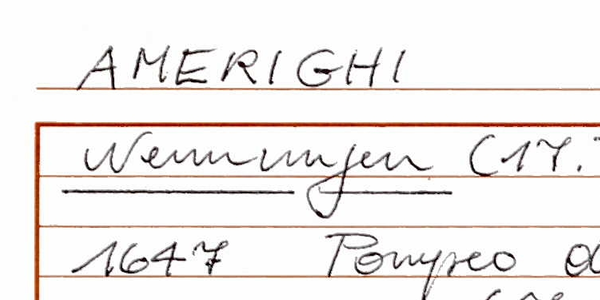 AMERIGHI
Wemmingen (17.
1647 Pompeo d